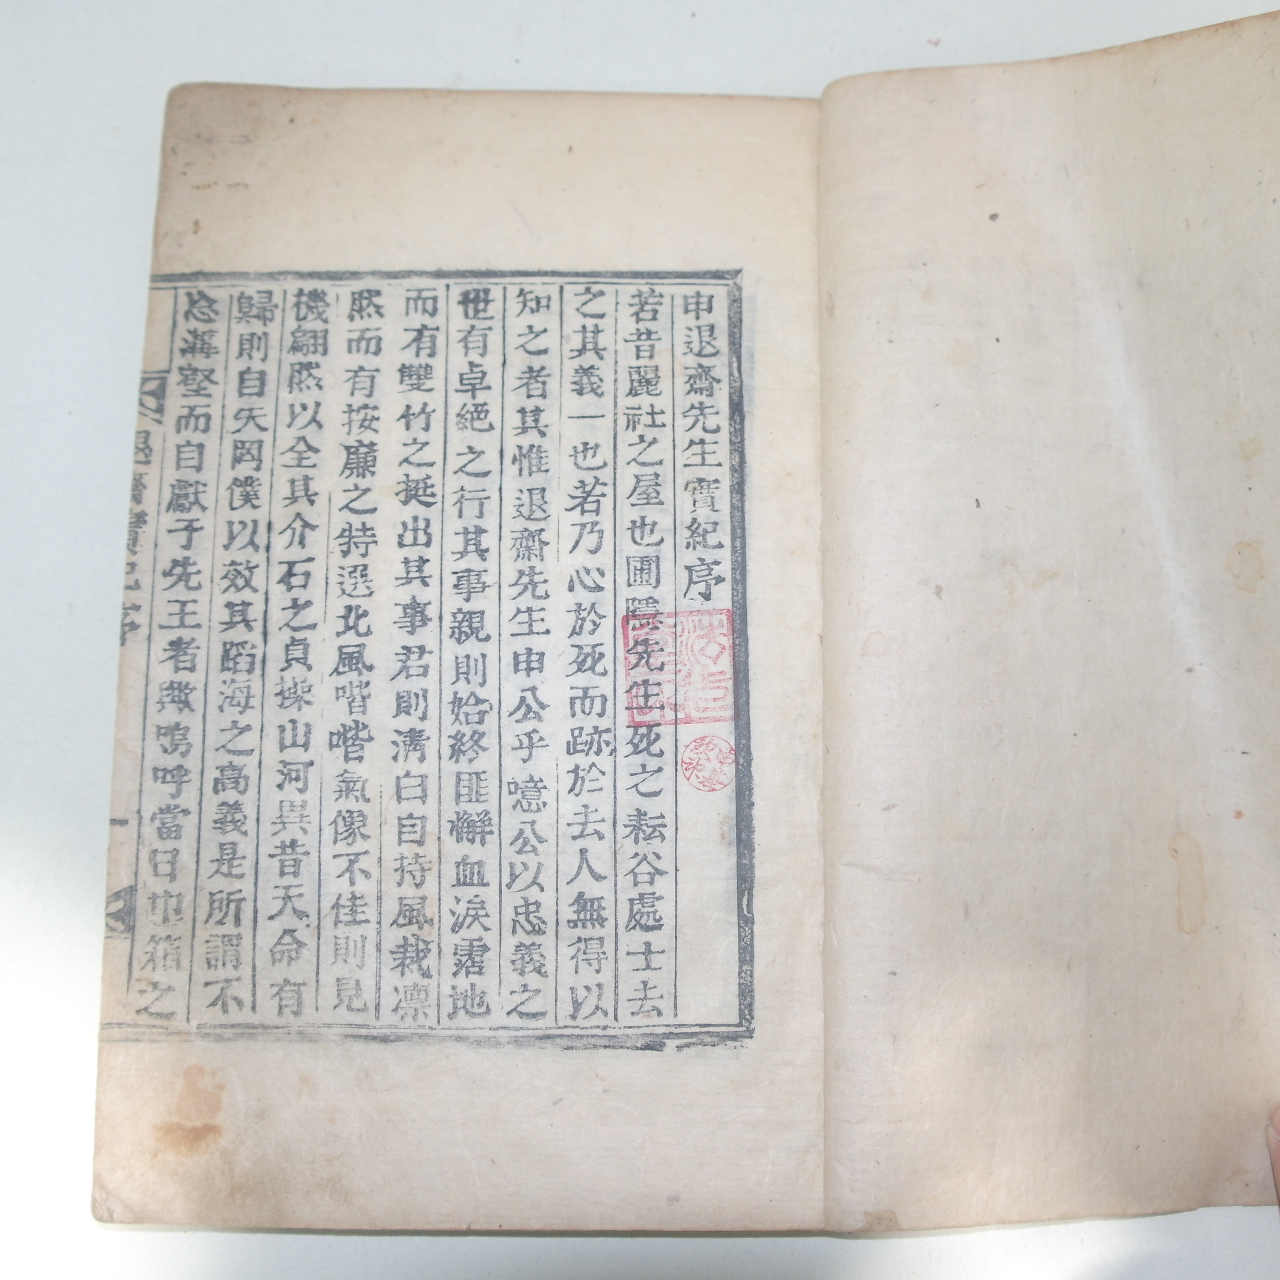 申退齋先生實紀序
若昔麗社之屋也圃隱先生死之耘谷處士去
之其義一也若乃心於死而跡於去人無得以
知之者其惟退齋先生申公乎噫公以忠義之
世有卓絕之行其事親則始終匪懈血淚霑地
而有雙竹之挺出其事君則淸白自持風裁凛
然而有按廉之特選北風喈喈氣像不佳則見
機翩然以全其介石之貞操山河異昔天命有
歸則自矢罔僕以效其蹈海之高義是所謂不
忘溝壑而自獻于先王者歟嗚呼當日巾箱之
退齋實紀序 一